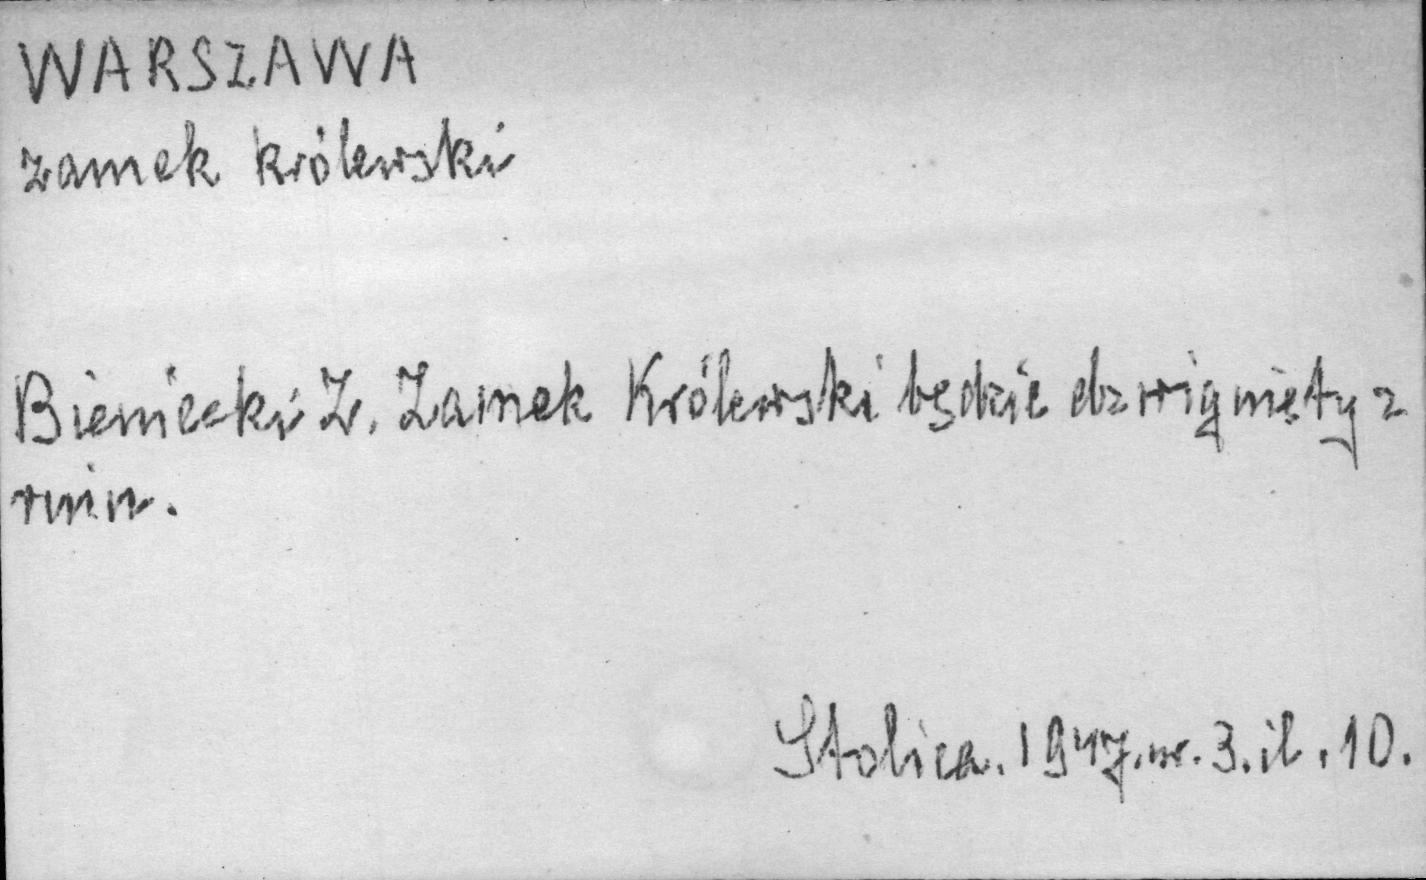 WARSZAWA
zamek królewski
Bieniecki Z. Zamek Królewski będzie dzwignięty z
ruin.
Stolica. 1947. nr. 3. il. 10.